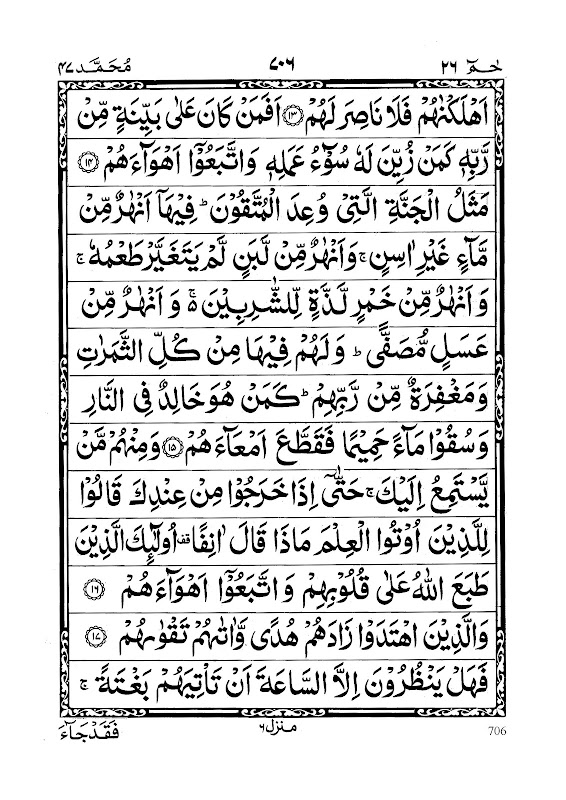 حٰمٓ ٢٦ ٧٠٦ مُحَمَّد ٤٧
اَهْلَكْنٰهُمْ فَلَا نَاصِرَ لَهُمْ ⁝١٣ اَفَمَنْ كَانَ عَلٰى بَيِّنَةٍ مِّنْ
رَّبِّهٖ كَمَنْ زُيِّنَ لَهٗ سُوْٓءُ عَمَلِهٖ وَاتَّبَعُوْٓا اَهْوَآءَهُمْ ١٤
مَثَلُ الْجَنَّةِ الَّتِىْ وُعِدَ الْمُتَّقُوْنَ ؕ فِيْهَآ اَنْهٰرٌ مِّنْ
مَّآءٍ غَيْرِ اٰسِنٍ ۚ وَاَنْهٰرٌ مِّنْ لَّبَنٍ لَّمْ يَتَغَيَّرْ طَعْمُهٗ ۚ
وَاَنْهٰرٌ مِّنْ خَمْرٍ لَّذَّةٍ لِّلشّٰرِبِيْنَ ۚ۬ وَاَنْهٰرٌ مِّنْ
عَسَلٍ مُّصَفًّى ؕ وَلَهُمْ فِيْهَا مِنْ كُلِّ الثَّمَرٰتِ
وَمَغْفِرَةٌ مِّنْ رَّبِّهِمْ ؕ كَمَنْ هُوَ خَالِدٌ فِى النَّارِ
وَسُقُوْا مَآءً حَمِيْمًا فَقَطَّعَ اَمْعَآءَهُمْ ١٥ وَمِنْهُمْ مَّنْ
يَّسْتَمِعُ اِلَيْكَ ۚ حَتّٰىٓ اِذَا خَرَجُوْا مِنْ عِنْدِكَ قَالُوْا
لِلَّذِيْنَ اُوْتُوا الْعِلْمَ مَاذَا قَالَ اٰنِفًا قف اُولٰٓئِكَ الَّذِيْنَ
طَبَعَ اللّٰهُ عَلٰى قُلُوْبِهِمْ وَاتَّبَعُوْٓا اَهْوَآءَهُمْ ١٦
وَالَّذِيْنَ اهْتَدَوْا زَادَهُمْ هُدًى وَّاٰتٰىهُمْ تَقْوٰىهُمْ ١٧
فَهَلْ يَنْظُرُوْنَ اِلَّا السَّاعَةَ اَنْ تَاْتِيَهُمْ بَغْتَةً ۚ
706 منزل ٦ فَقَدْ جَآءَ